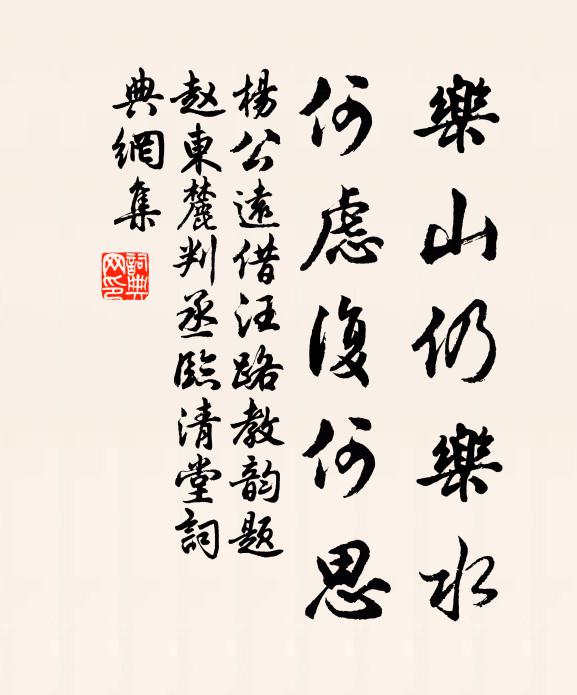 樂山仍樂水
何慮復何思
楊公遠借汪路教韵题
赵東麓判丞臨清堂詞
典網集
詞典网印